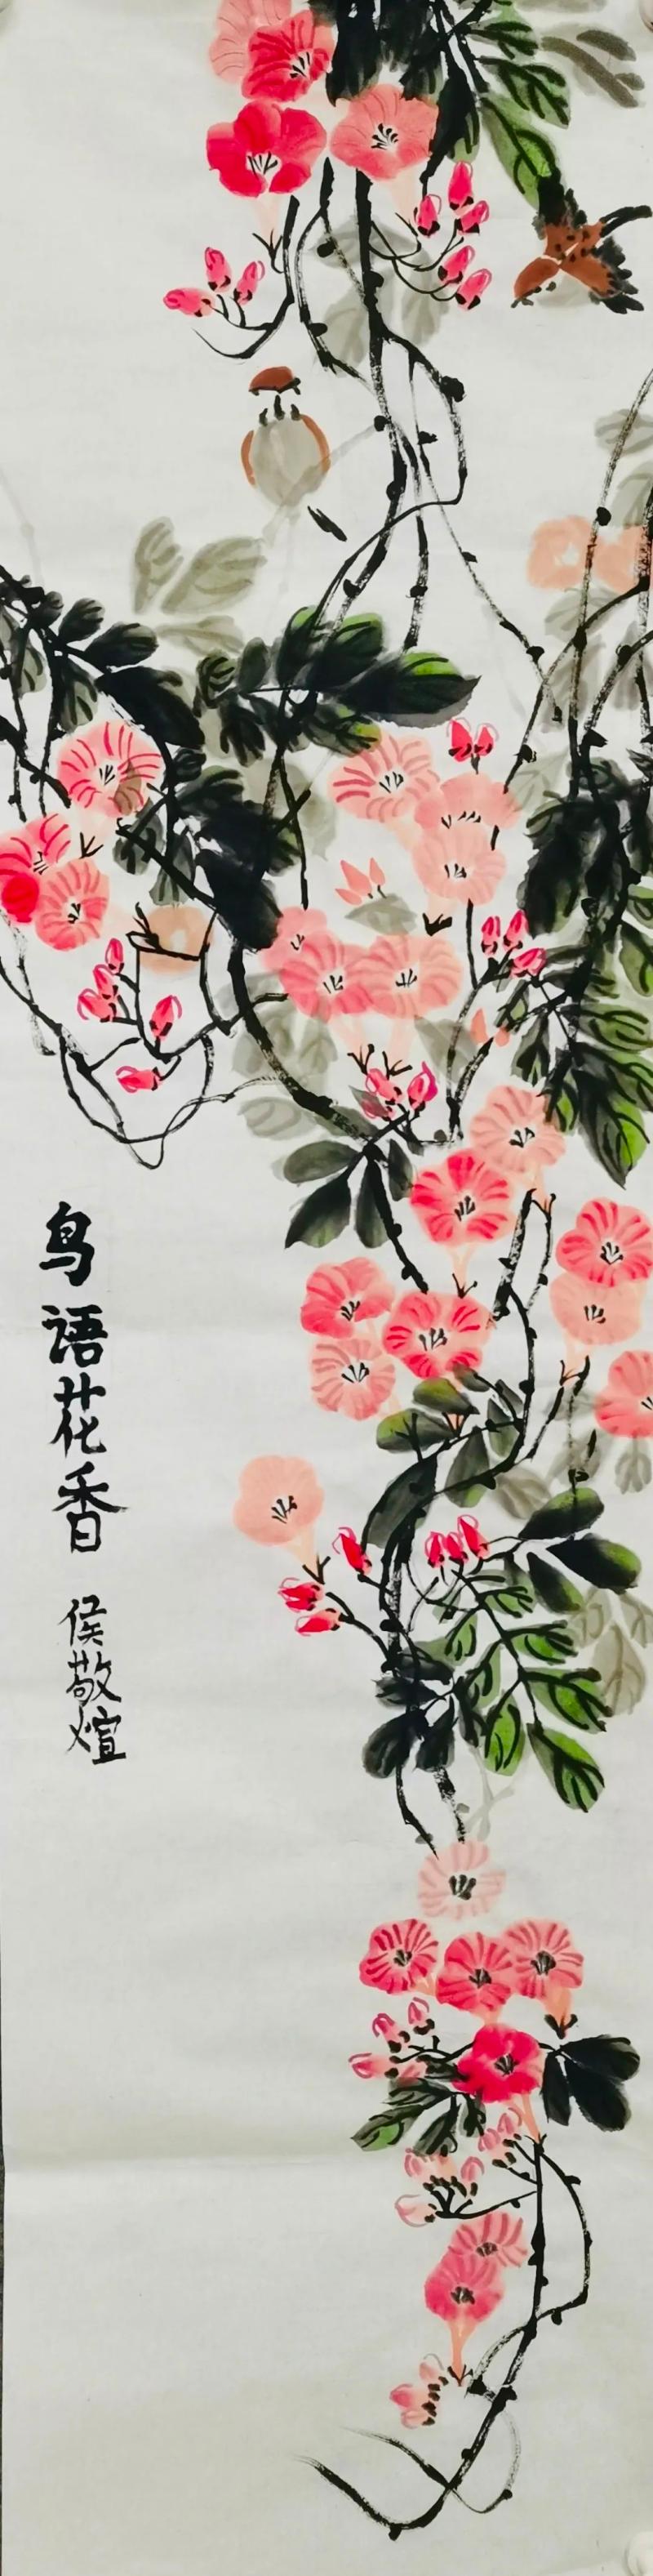 鸟语花香
侯敬煊